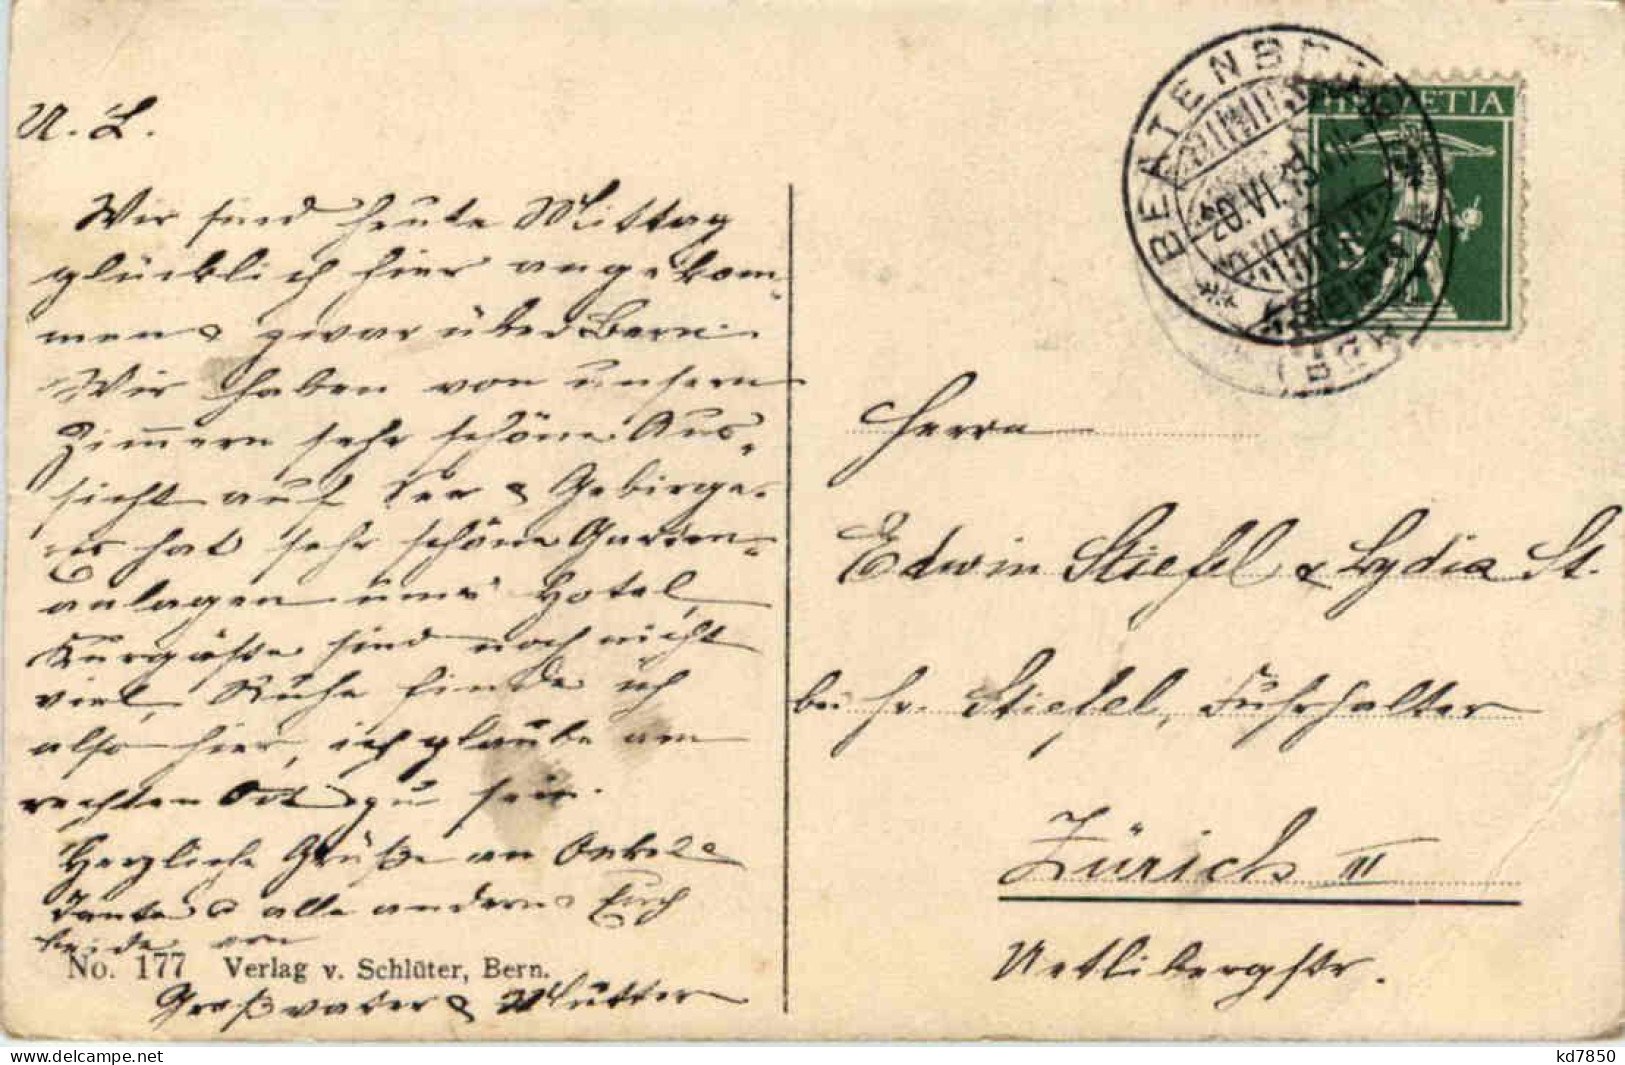 U. L.
Wir sind heute Mittag
glücklich hier angekom-
men & zwar über Bern.
Wir haben von unsern
Zimmern sehr schöne Aus-
sicht auf See & Gebirge.
Es hat sehr schöne Garten-
anlagen ums Hotel,
Kurgäste sind noch nicht
viel, Ruhe finde ich
also hier, ich glaube am
rechten Ort zu sein.
Herzliche Grüße an Onkel &
Tante & alle andern. Euch
beide von
Großvater & Mutter
No. 177 Verlag v. Schlüter, Bern.
HELVETIA
BEATENBERG
20.VI.
(BERN)
Herrn
Edwin Stiefel & Lydia St.
bei Hr. Stiefel, Fuhrhalter
Zürich III
Uetlibergstr.
www.delcampe.net
kd7850